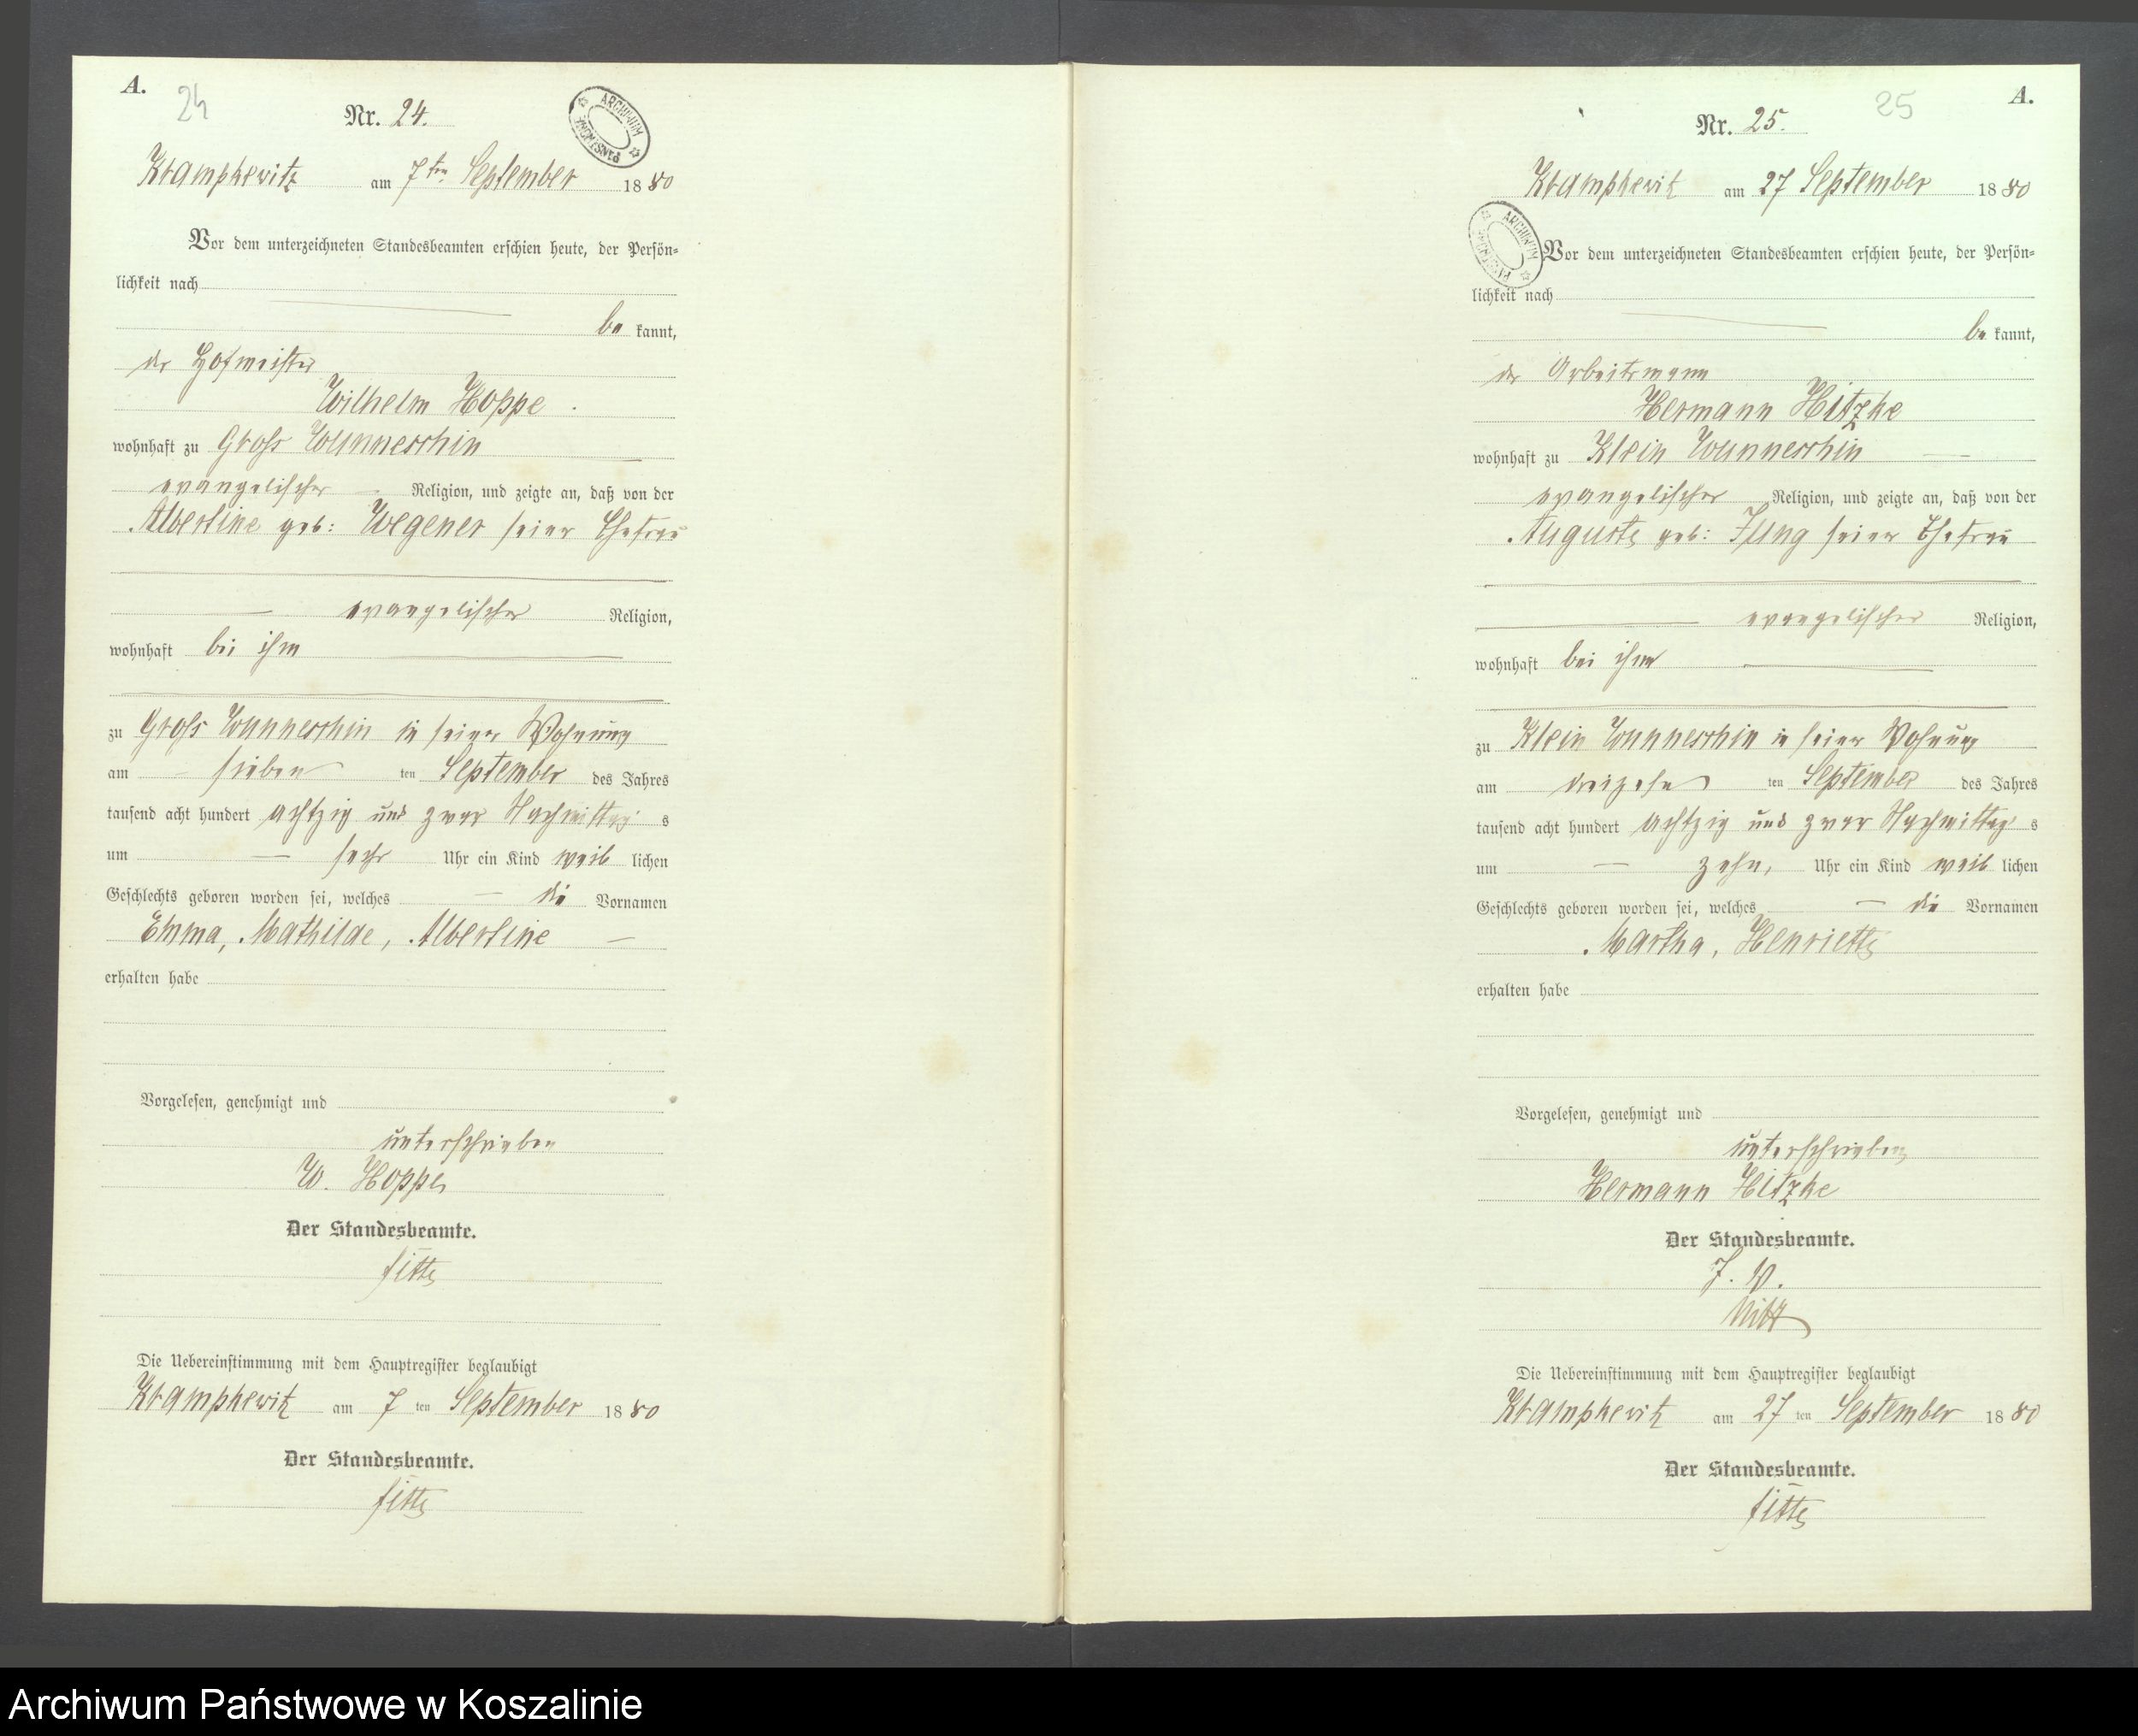 A.
24
Nr. 24.
ARCHIWUM PAŃSTWOWE
Krampkewitz am 7ten September 1880
Vor dem unterzeichneten Standesbeamten erschien heute, der Persön-
lichkeit nach
be kannt,
der Hofmeister
Wilhelm Hoppe.
wohnhaft zu Gross Wunneschin
evangelischer Religion, und zeigte an, daß von der
Albertine geb: Wegener seiner Ehefrau
evangelischer Religion,
wohnhaft bei ihm
zu Gross Wunneschin in seiner Wohnung
am sieben ten September des Jahres
tausend acht hundert achtzig und zwar Nachmittag s
um sechs Uhr ein Kind weib lichen
Geschlechts geboren worden sei, welches die Vornamen
Emma, Mathilde, Albertine
erhalten habe
Vorgelesen, genehmigt und
unterschrieben
W. Hoppe
Der Standesbeamte.
Die Uebereinstimmung mit dem Hauptregister beglaubigt
Krampkewitz am 7 ten September 1880
Der Standesbeamte.
25
A.
Nr. 25.
ARCHIWUM PAŃSTWOWE
Krampkewitz am 27 September 1880
Vor dem unterzeichneten Standesbeamten erschien heute, der Persön-
lichkeit nach
be kannt,
der Arbeitsmann
Hermann Hitzke
wohnhaft zu Klein Wunneschin
evangelischer Religion, und zeigte an, daß von der
Auguste geb: Jung seiner Ehefrau
evangelischer Religion,
wohnhaft bei ihm
zu Klein Wunneschin in seiner Wohnung
am dreizehn ten September des Jahres
tausend acht hundert achtzig und zwar Nachmittag s
um zehn, Uhr ein Kind weib lichen
Geschlechts geboren worden sei, welches die Vornamen
Martha, Henriette
erhalten habe
Vorgelesen, genehmigt und
unterschrieben
Hermann Hitzke
Der Standesbeamte.
J. V.
Die Uebereinstimmung mit dem Hauptregister beglaubigt
Krampkewitz am 27 ten September 1880
Der Standesbeamte.
Archiwum Państwowe w Koszalinie